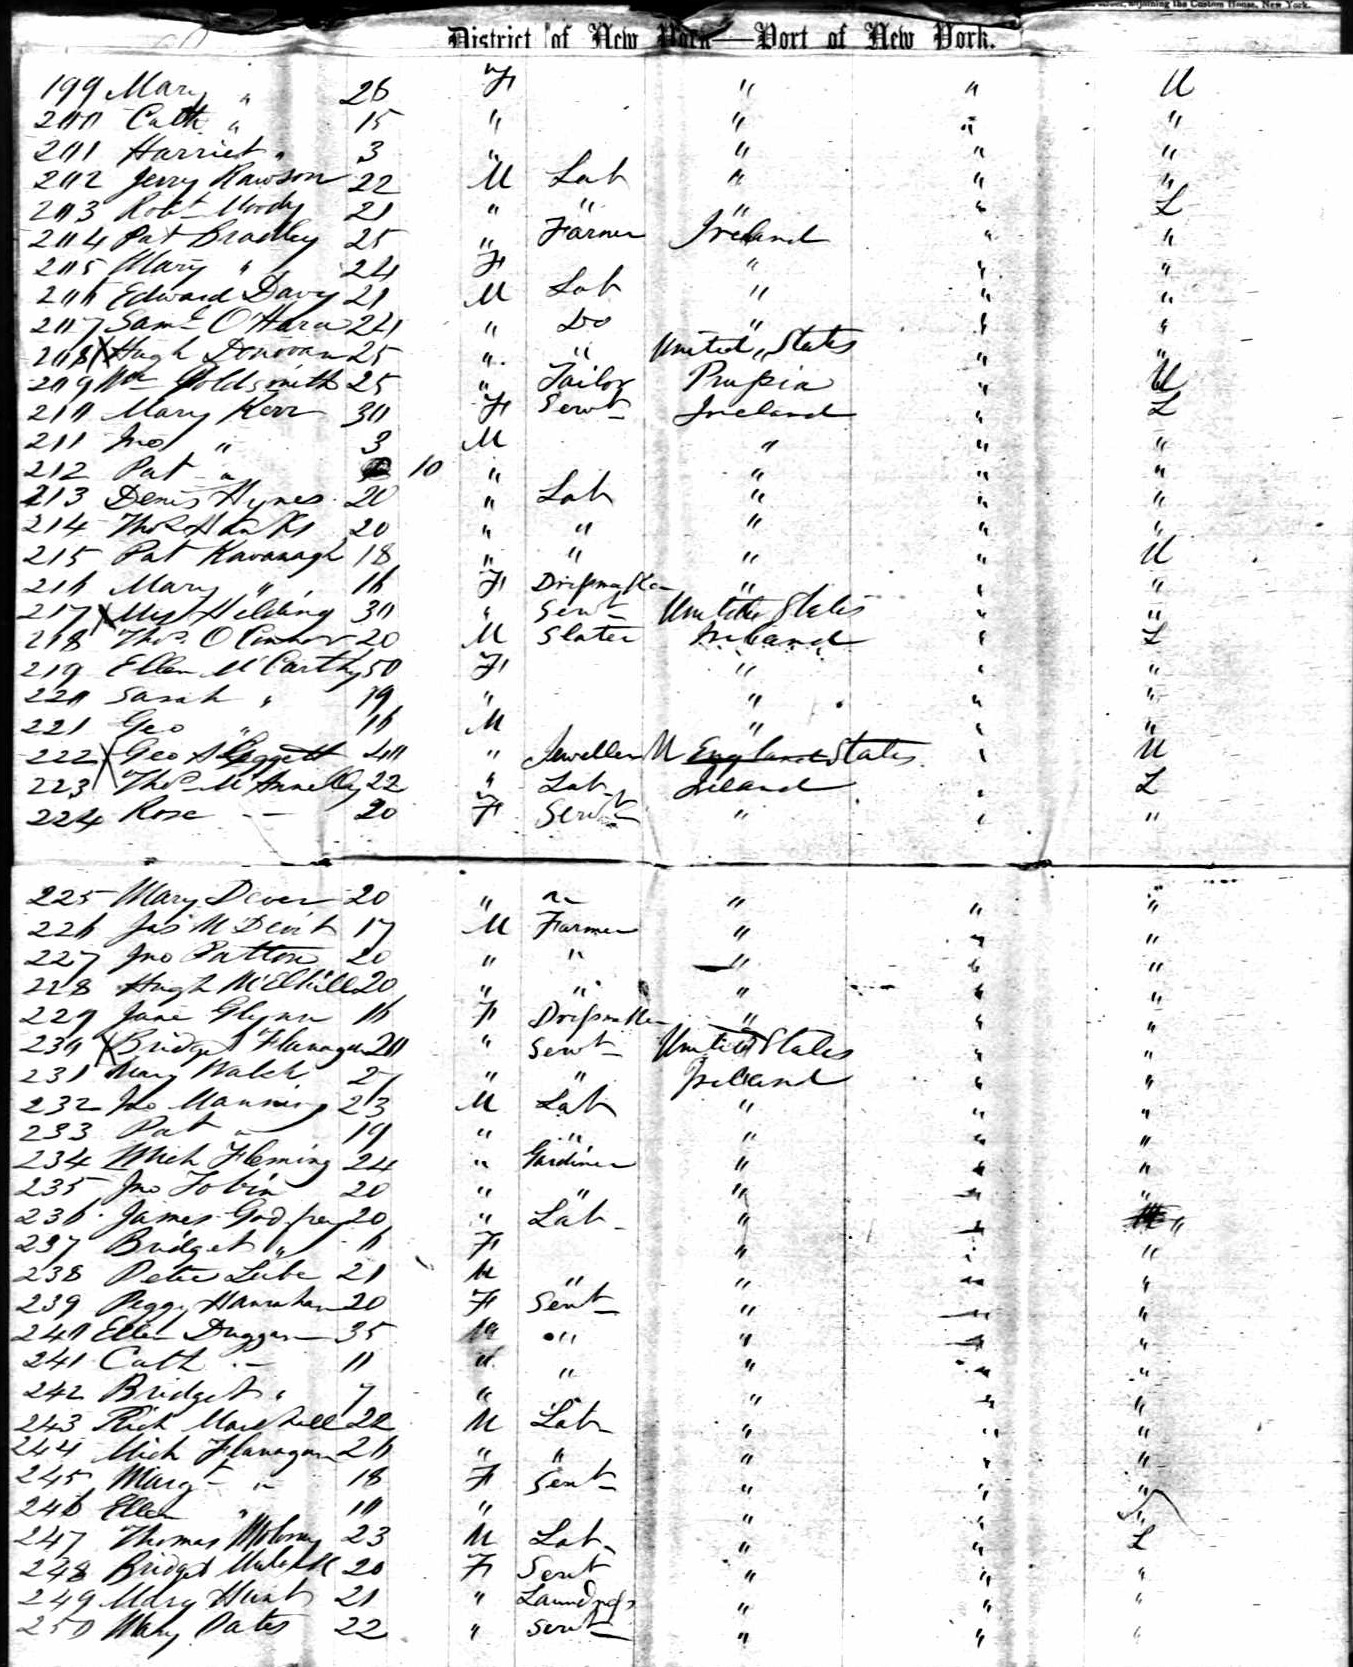 adjoining the Custom House, New York.
District of New York—Port of New York.
199 Mary " 26 F " " U
200 Cath " 15 " " " "
201 Harriet " 3 " " " "
202 Jerry Rawson 22 M Lab " " "
203 Robt Moody 21 " " " " L
204 Pat Bradley 25 " Farmer Ireland " "
205 Mary " 24 F " " "
206 Edward Davy 21 M Lab " " "
207 Saml O'Hara 24 " Do " " "
208 X Hugh Donovan 25 " " United States " "
209 Wm Goldsmith 25 " Tailor Prussia " U
210 Mary Kerr 30 F Servt Ireland " L
211 Jno " 3 M " " "
212 Pat " 10 " " " "
213 Denis Hynes 20 " Lab " " "
214 Thos Hanks 20 " " " " "
215 Pat Kavanagh 18 " " " " U
216 Mary " 16 F Dressmaker " " "
217 X 30 " Servt United States " "
218 Thos O Connor 20 M Slater Ireland " L
219 Ellen McCarthy 50 F " " "
220 Sarah " 19 " " " "
221 Geo " 16 M " " "
222 X Geo 40 " Jeweller U States " U
223 Thos 22 " Lab Ireland " L
224 Rose — 20 F Servt " " "
225 Mary Dever 20 " " " " "
226 Jas McDevit 17 M Farmer " " "
227 Jno Patton 20 " " " " "
228 Hugh 20 " " " " "
229 Jane Glynn 16 F Dressmaker " " "
230 X Bridget Flanagan 20 " Servt United States " "
231 Mary Walsh 27 " " Ireland " "
232 Jno Manning 23 M Lab " " "
233 Pat " 19 " " " " "
234 Mich Fleming 24 " Gardiner " " "
235 Jno Tobin 20 " " " " "
236 James Godfrey 20 " Lab " " "
237 Bridget " F " " "
238 Peter 21 M " " " "
239 Peggy Hanrahan 20 F Servt " " "
240 Ellen Duggan 35 " " " "
241 Cath — 11 " " " " "
242 Bridget " 7 " " " "
243 Rich Marshall 22 M Lab " " "
244 Mich Flanagan 20 " " " " "
245 Margt " 18 F Servt " " "
246 Ellen " 10 " " " "
247 Thomas Molony 23 M Lab " " L
248 Bridget 20 F Servt " " "
249 Mary Hunt 21 " Laundress " " "
250 Mary Oates 22 " Servt " " "